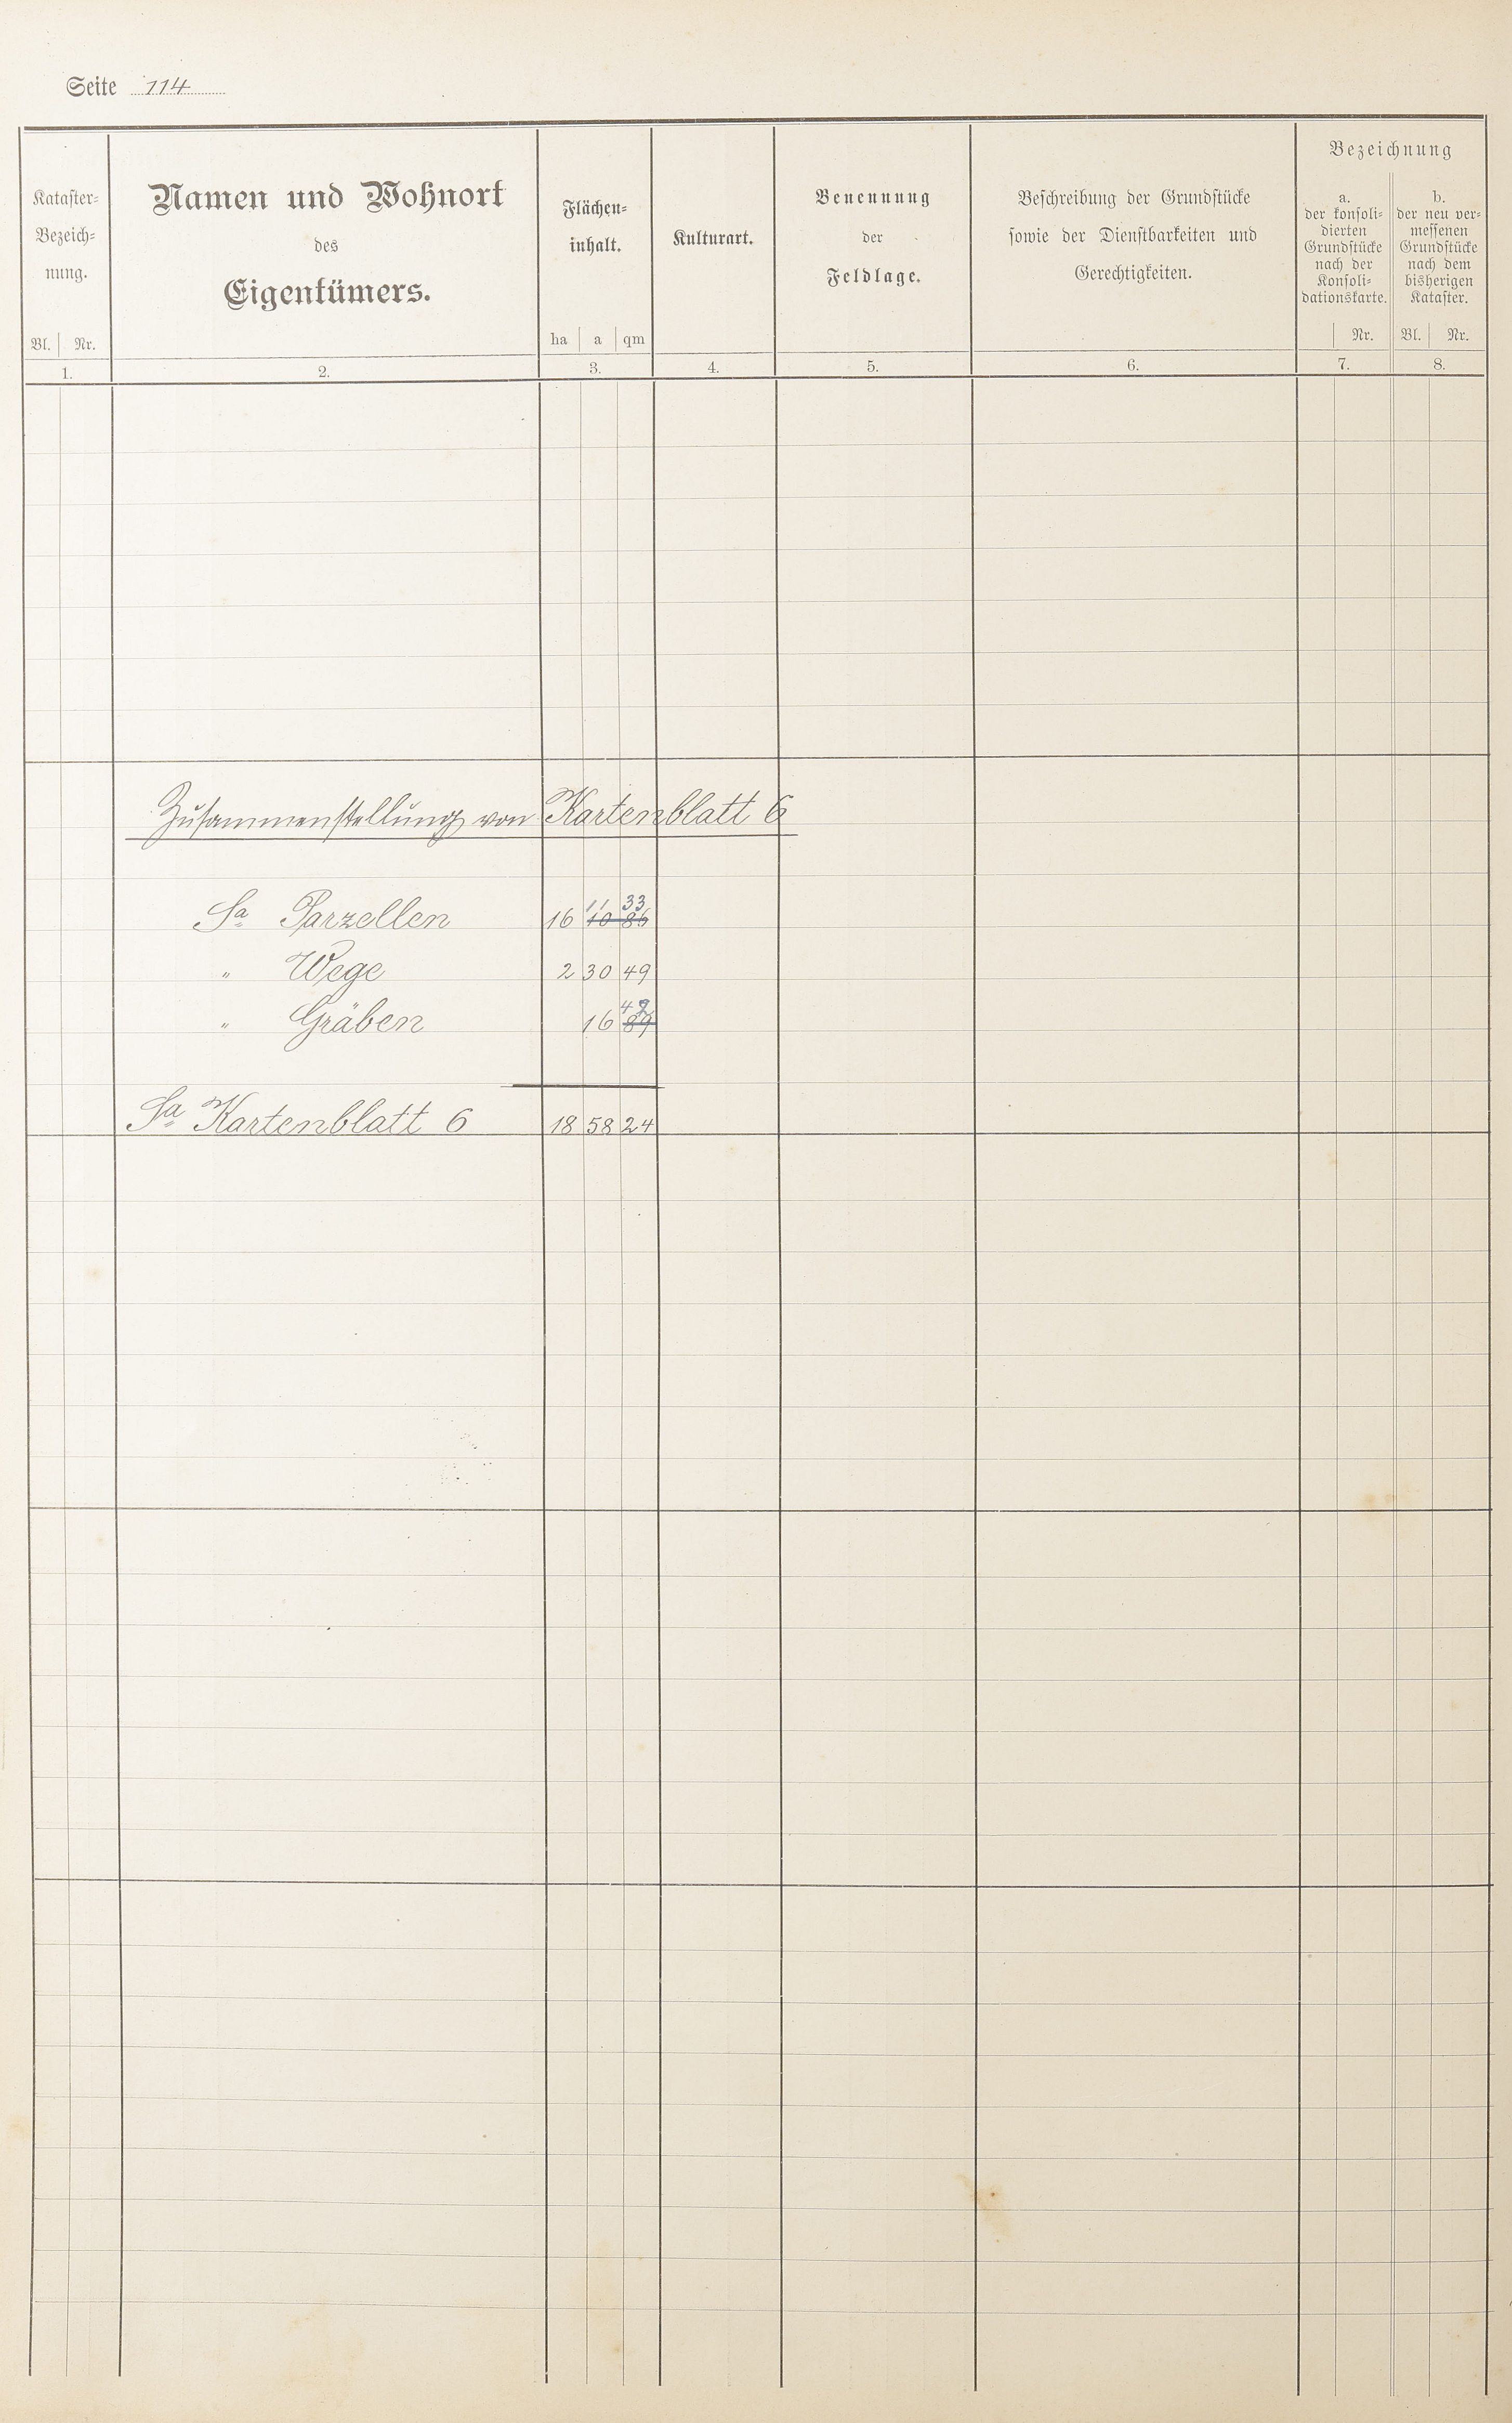 Seite 114
Kataster-
Bezeich-
nung.
Bl. Nr.
1.
Namen und Wohnort
des
Eigentümers.
2.
Flächen-
inhalt.
ha a qm
3.
Kulturart.
4.
Benennung
der
Feldlage.
5.
Beschreibung der Grundstücke
sowie der Dienstbarkeiten und
Gerechtigkeiten.
6.
Bezeichnung
a.
der konsoli-
dierten
Grundstücke
nach der
Konsoli-
dationskarte.
Nr.
7.
b.
der neu ver-
messenen
Grundstücke
nach dem
bisherigen
Kataster.
Bl. Nr.
8.
Zusammenstellung von Kartenblatt 6
11 33
Sa Parzellen 16 10 86
" Wege 2 30 49
42
" Gräben 16 89
Sa Kartenblatt 6 18 58 24